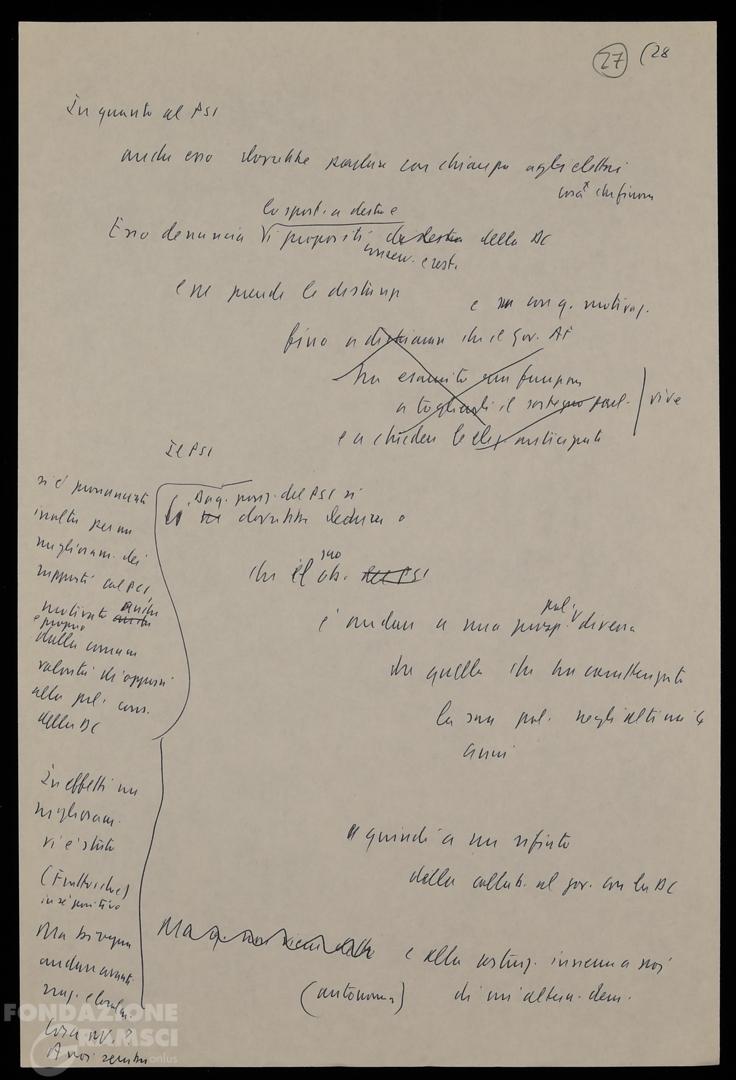 27 (28
In quanto al PSI
anche esso dovrebbe parlare con chiarezza agli elettori
cosa che finora
lo spost. a destra e
Esso denuncia i propositi di destra della DC
conserv. e rest.
e ne prende le distanze
e con q. motivaz.
fino a dichiarare che il gov. A.F.
ha esaurito sua funzione
a togliergli il sostegno parl.
e a chiedere le elez. anticipate
vive
Il PSI
Da q. posiz. del PSI si
dovrebbe dedurre
che il suo ob. del PSI
è andare a una prosp. pol. diversa
da quella che ha caratterizzato
la sua pol. negli ultimi 4
anni
quindi a un rifiuto
della collab. al gov. con la DC
Ma
e alla costruz. insieme a noi
(autonoma) di un'altern. dem.
si è pronunciato
inoltre per un
miglioram. dei
rapporti col PCI
motivato anche
e proprio
dalla comune
volontà di opporsi
alla pol. cons.
della DC
In effetti un
miglioram.
vi è stato
in sé positivo
Ma bisogna
andare avanti
A noi sembra
FONDAZIONE
GRAMSCI
onlus